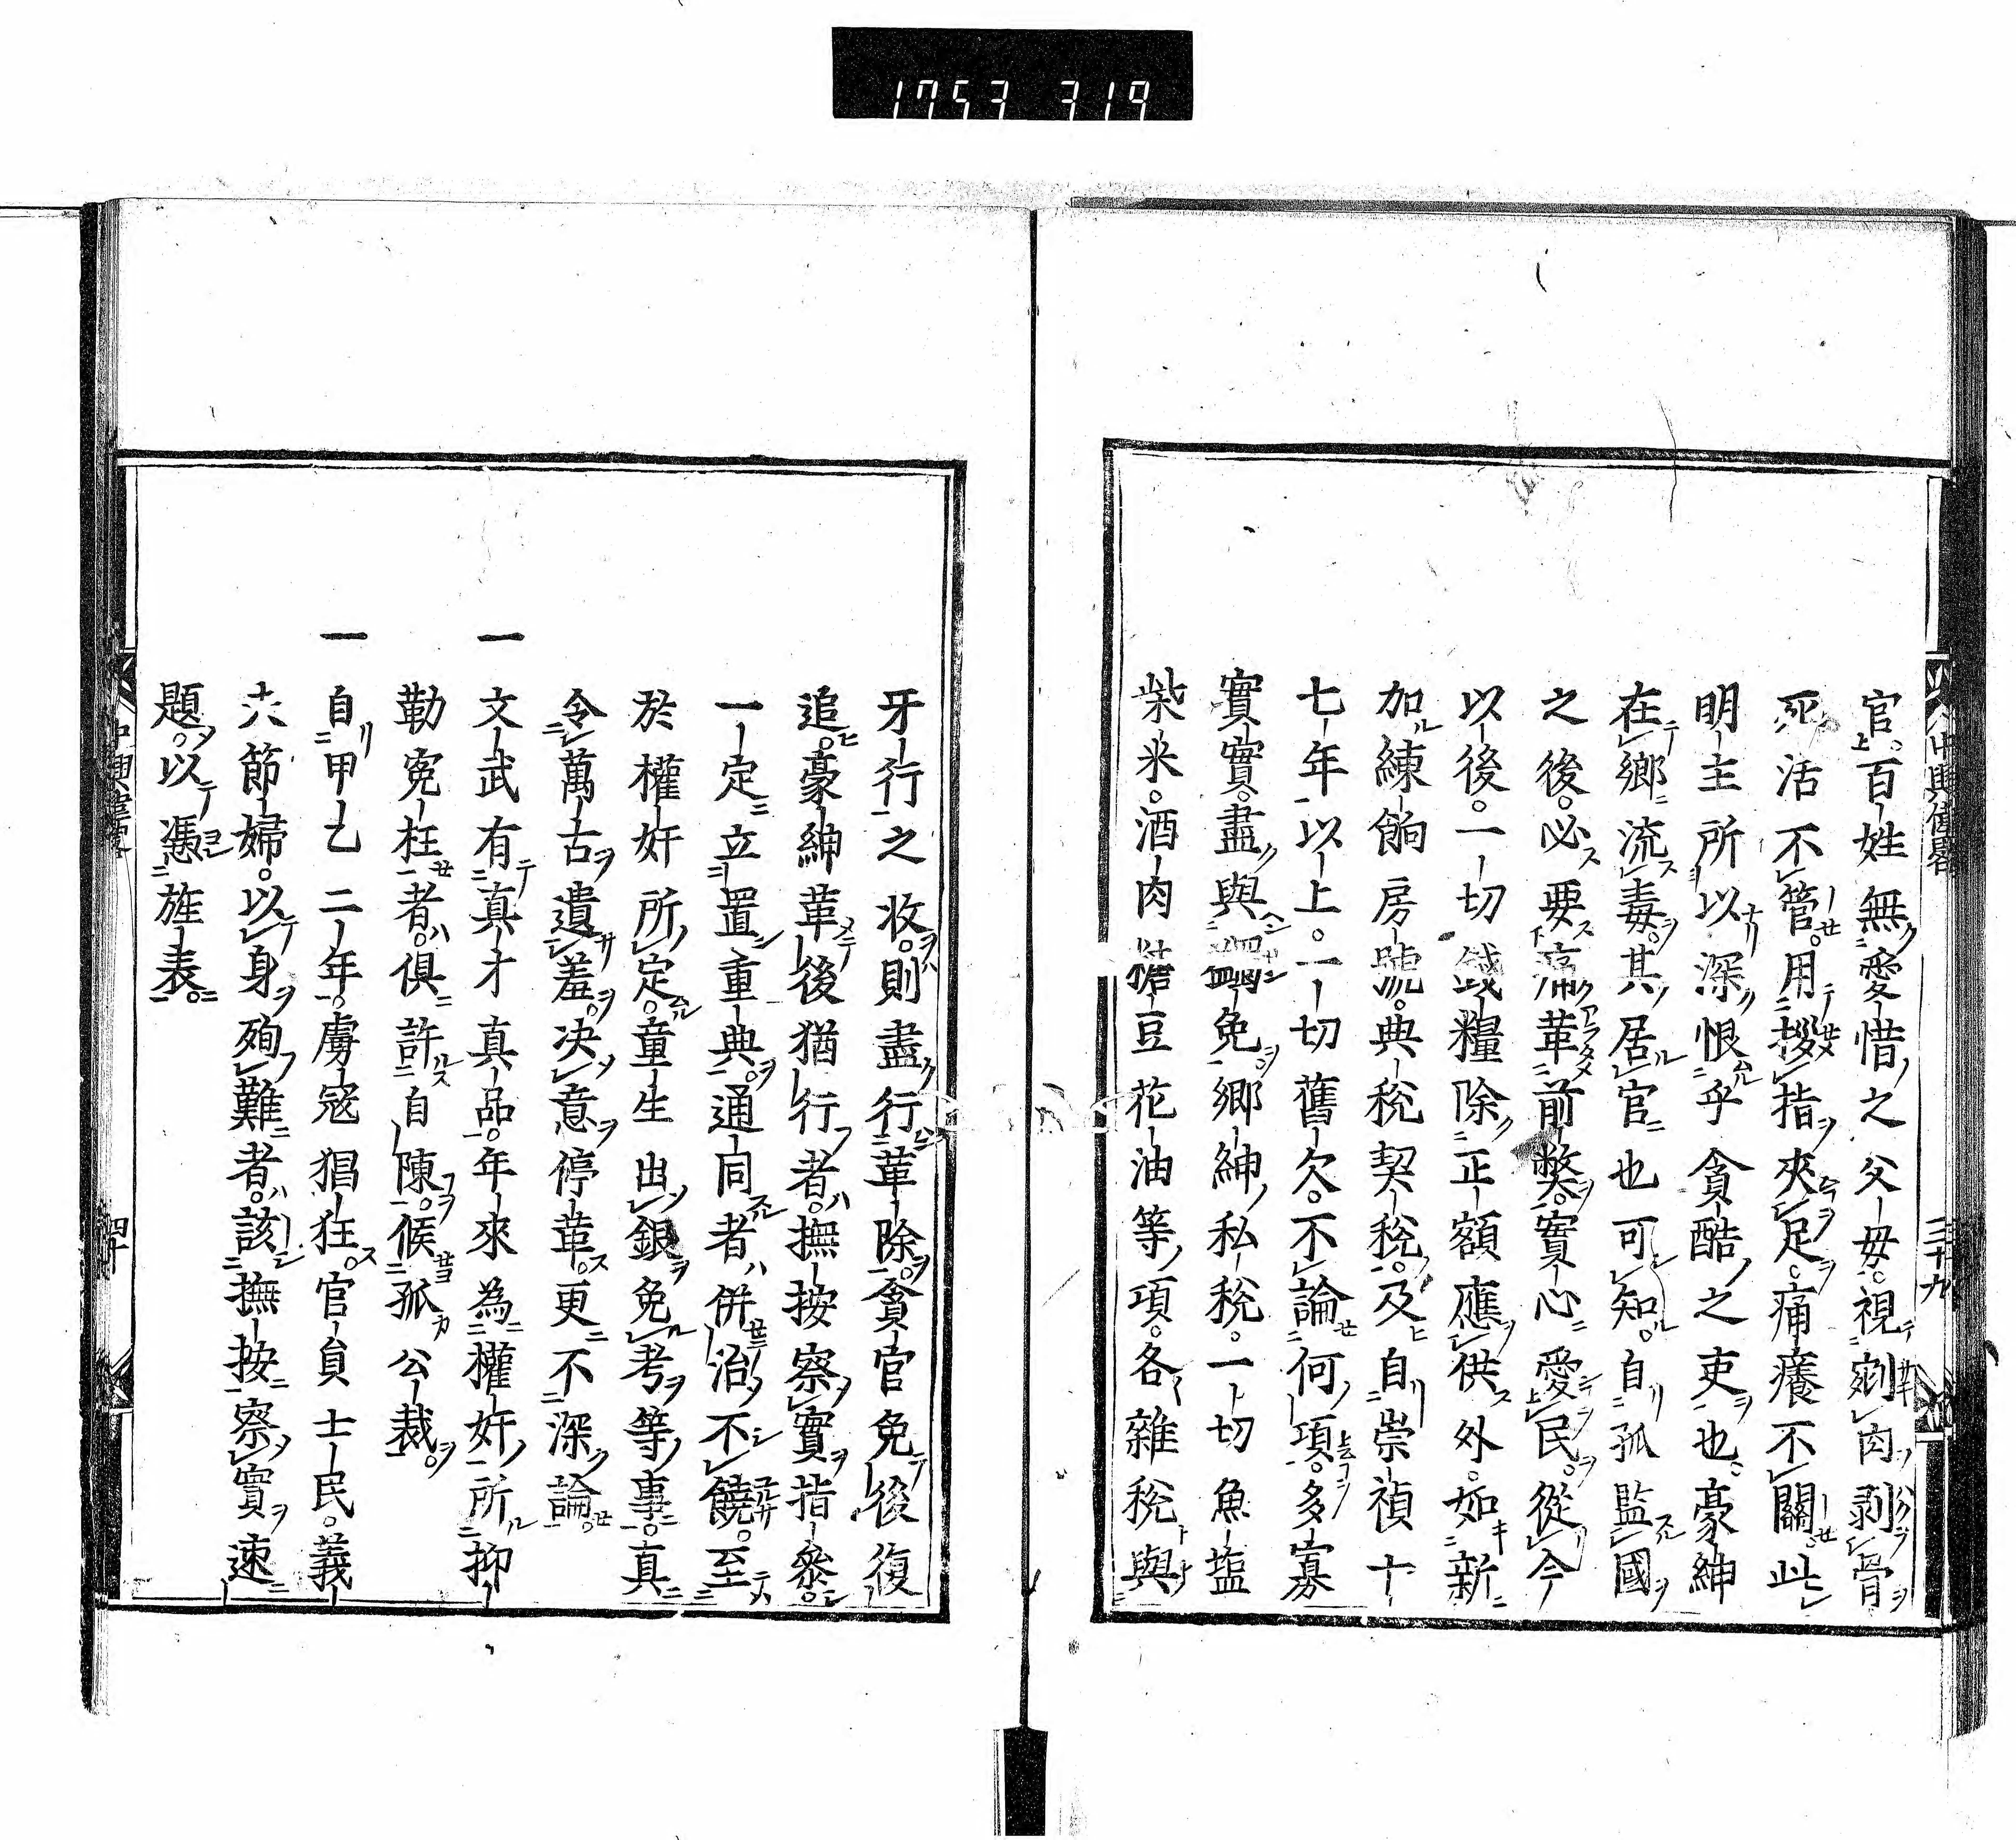 1753 319
中興偉畧
三十九
官百姓無愛惜之父母視剜肉剥骨
死活不管用拶指夾足痛癢不關此
明主所以深恨乎貪酷之吏也豪紳
在鄉流毒其居官也可知自孤監國
之後必要痛革前獘實心愛民從今
以後一切錢糧除正額應供外如新
加練餉房號典税契税及自崇禎十
七年以上一切舊欠不論何項多寡
實實盡與蠲免鄉紳私税一切魚塩
柴米酒肉豆花油等項各雜税與
牙行之收則盡行革除貪官免後復
追豪紳革後猶行者撫按察實指參
一定立置重典通同者併治不饒至
於權奸所定童生出銀免考等事真
令萬古遺羞决意停革更不深論
一文武有真才真品年來為權奸所抑
勒寃枉者俱許自陳候孤公裁
一自甲乙二年虜寇猖狂官員士民義
六節婦以身殉難者該撫按察實速
題以憑旌表
四十